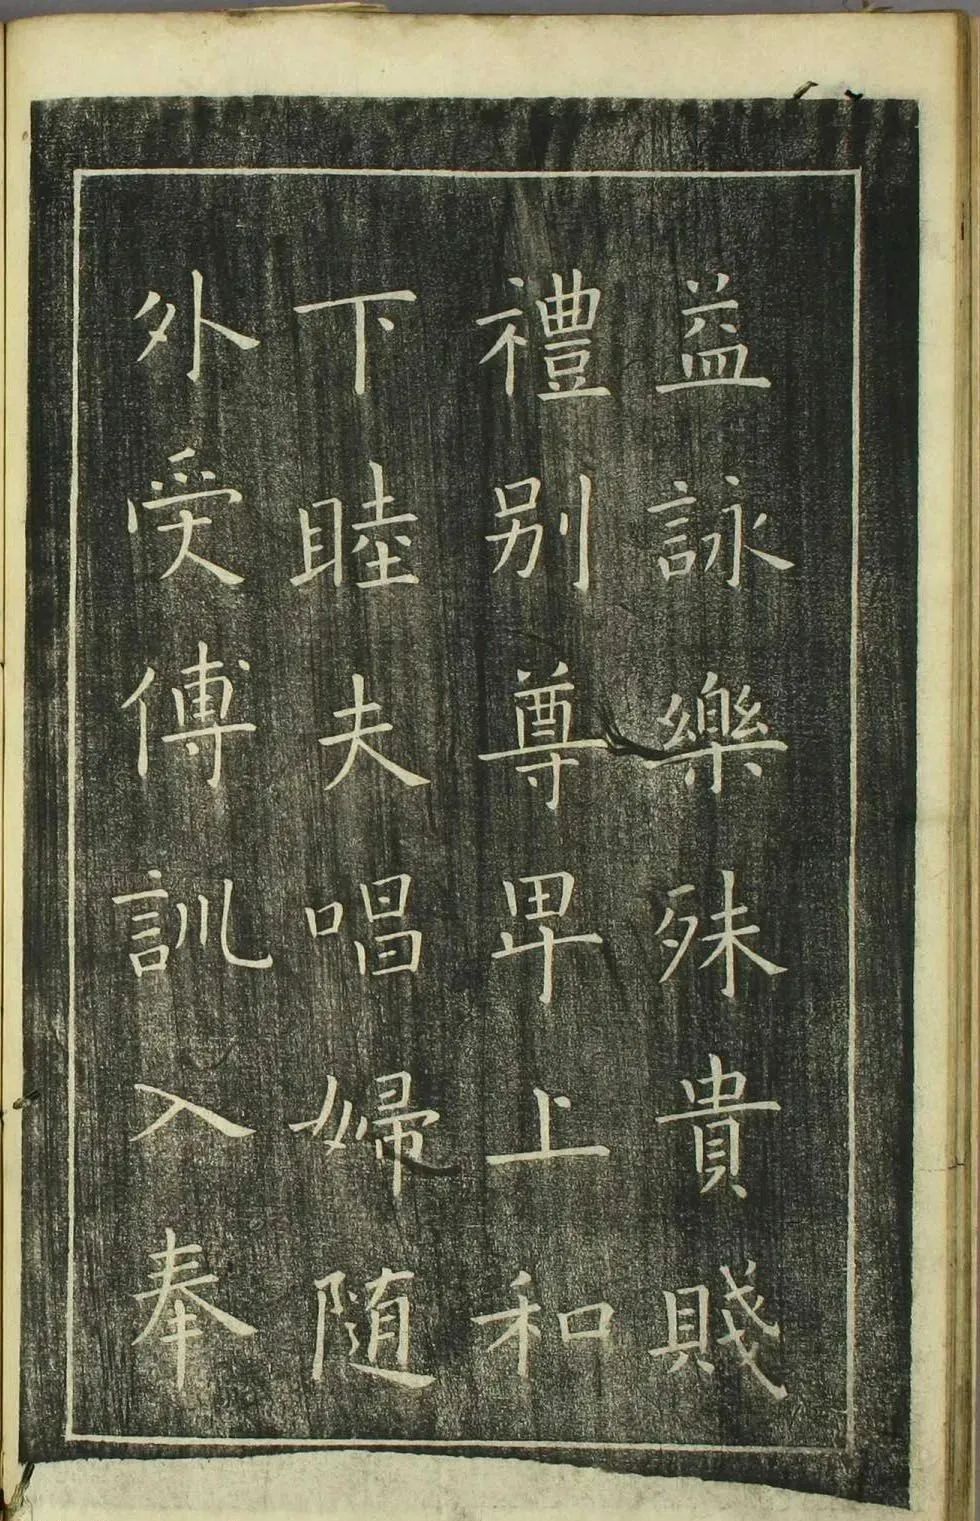 益詠樂殊貴賤
禮别尊卑上和
下睦夫唱婦随
外受傅訓入奉